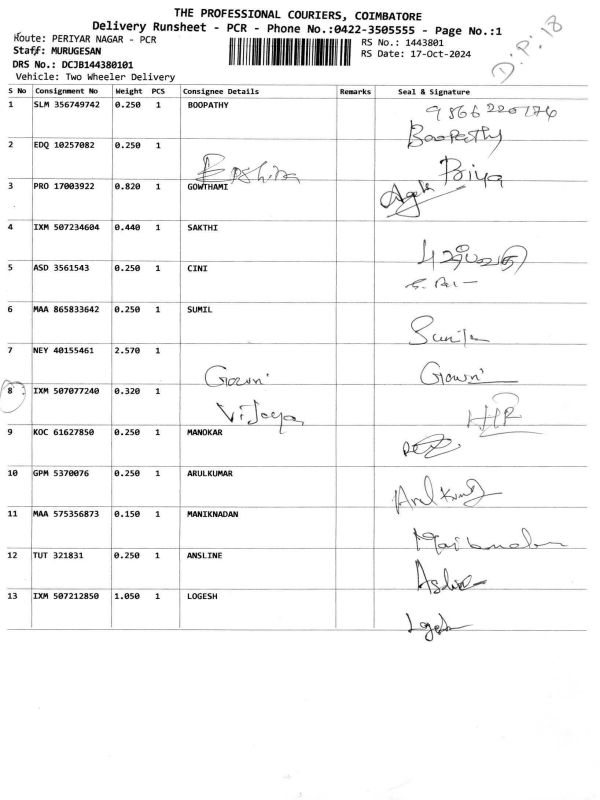 THE PROFESSIONAL COURIERS, COIMBATORE
Delivery Runsheet - PCR - Phone No.:0422-3505555 - Page No.:1
Route: PERIYAR NAGAR - PCR
RS No.: 1443801
D.P: 18
Staff: MURUGESAN
RS Date: 17-Oct-2024
DRS No.: DCJB144380101
Vehicle: Two Wheeler Delivery
S No Consignment No Weight PCS Consignee Details Remarks Seal & Signature
1 SLM 356749742 0.250 1 BOOPATHY
Boopathy
2 EDQ 10257082 0.250 1
Priya
3 PRO 17003922 0.820 1 GOWTHAMI
4 IXM 507234604 0.440 1 SAKTHI
5 ASD 3561543 0.250 1 CINI
6 MAA 865833642 0.250 1 SUMIL
7 NEY 40155461 2.570 1
Gowri Gowri
8 IXM 507077240 0.320 1
Vijaya
9 KOC 61627850 0.250 1 MANOKAR
10 GPM 5370076 0.250 1 ARULKUMAR
11 MAA 575356873 0.150 1 MANIKNADAN
12 TUT 321831 0.250 1 ANSLINE
13 IXM 507212850 1.050 1 LOGESH
Logesh